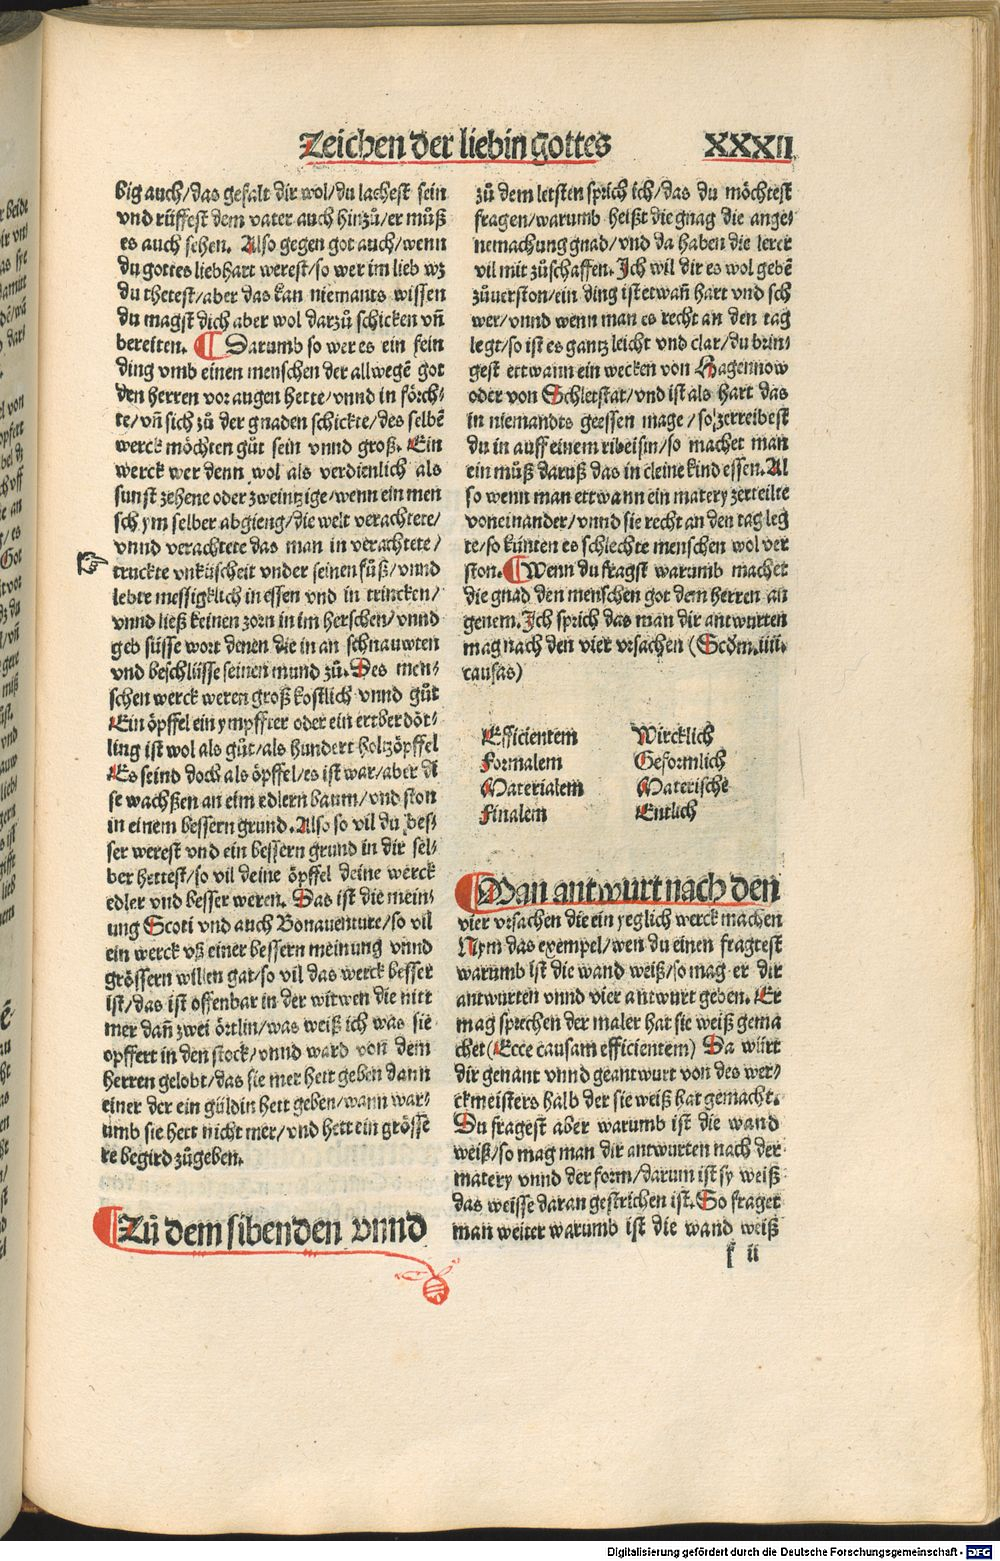 Zeichen der liebin gottes XXXII
big auch/das gefalt dir wol/du lachest sein
vnd rüffest dem vater auch hinzů/er můß
es auch sehen. Also gegen got auch/wenn
du gottes liebhart werest/so wer im lieb wz
du thetest/aber das kan niemants wissen
du magst dich aber wol darzů schicken vñ
bereiten. ¶ Darumb so wer es ein fein
ding vmb einen menschen der allwegẽ got
den herren vor augen hette/vnnd in förch-
te/vñ sich zů der gnaden schickte/des selbẽ
werck möchten gůt sein vnnd groß. Ein
werck wer denn wol als verdienlich als
sunst zehene oder zweintzige/wenn ein men
sch ym selber abgieng/die welt verachtete/
vnnd verachtete das man in verachtete/
truckte vnküscheit vnder seinen fůß/vnnd
lebte messigklich in essen vnd in trincken/
vnnd ließ keinen zorn in im herschen/vnnd
geb süsse wort denen die in an schnauwten
vnd beschlüsse seinen mund zů. Des men-
schen werck weren groß kostlich vnnd gůt
Ein öpffel ein ympffter oder ein ertber döt-
ling ist wol als gůt/als hundert holtzöpffel
Es seind doch als öpffel/es ist war/aber di
se wachßen an eim edlern baum/vnd ston
in einem bessern grund. Also so vil du bes-
ser werest vnd ein bessern grund in dir sel-
ber hettest/so vil deine öpffel deine werck
edler vnd besser weren. Das ist die mein-
ung Scoti vnd auch Bonauenture/so vil
ein werck vß einer bessern meinung vnnd
grössern willen gat/so vil das werck besser
ist/das ist offenbar in der witwen die nitt
mer dañ zwei örtlin/was weiß ich was sie
opffert in den stock/vnnd ward von dem
herren gelobt/das sie mer hett geben dann
einer der ein güldin hett geben/wann war-
umb sie hett nicht mer/vnd hett ein grösse
re begird zůgeben.
¶ Zů dem sibenden vnnd
zů dem letsten sprich ich/das du möchtest
fragen/warumb heißt die gnag die ange-
nemachung gnad/vnd da haben die lerer
vil mit zůschaffen. Ich wil dir es wol gebẽ
zůuerston/ein ding ist etwañ hart vnd sch
wer/vnnd wenn man es recht an den tag
legt/so ist es gantz leicht vnd clar/du brin-
gest ettwann ein wecken von Hagennow
oder von Schletstat/vnd ist als hart das
in niemandts geessen mage/so zerreibest
du in auff einem ribeisin/so machet man
ein můß daruß das in cleine kind essen. Al
so wenn man ettwann ein matery zerteilte
voneinander/vnnd sie recht an den tag leg
te/so künten es schlechte menschen wol ver
ston. ¶ Wenn du fragst warumb machet
die gnad den menschen got dem herren an
genem. Ich sprich das man dir antwurten
mag nach den vier vrsachen (Scdm.iiii.
causas)
Efficientem Wircklich
Formalem Geformlich
Materialem Materische
Finalem Entlich
¶ Man antwurt nach den
vier vrsachen die ein yeglich werck machen
Nym das exempel/wen du einen fragtest
warumb ist die wand weiß/so mag er dir
antwurten vnnd vier antwurt geben. Er
mag sprechen der maler hat sie weiß gema
chet (Ecce causam efficientem) Da würt
dir genant vnnd geantwurt von des wer-
ckmeisters halb der sie weiß hat gemacht.
Du fragest aber warumb ist die wand
weiß/so mag man dir antwurten nach der
matery vnnd der form/darum ist sy weiß
das weisse daran gestrichen ist. So fraget
man weiter warumb ist die wand weiß
f ii
Digitalisierung gefördert durch die Deutsche Forschungsgemeinschaft - DFG